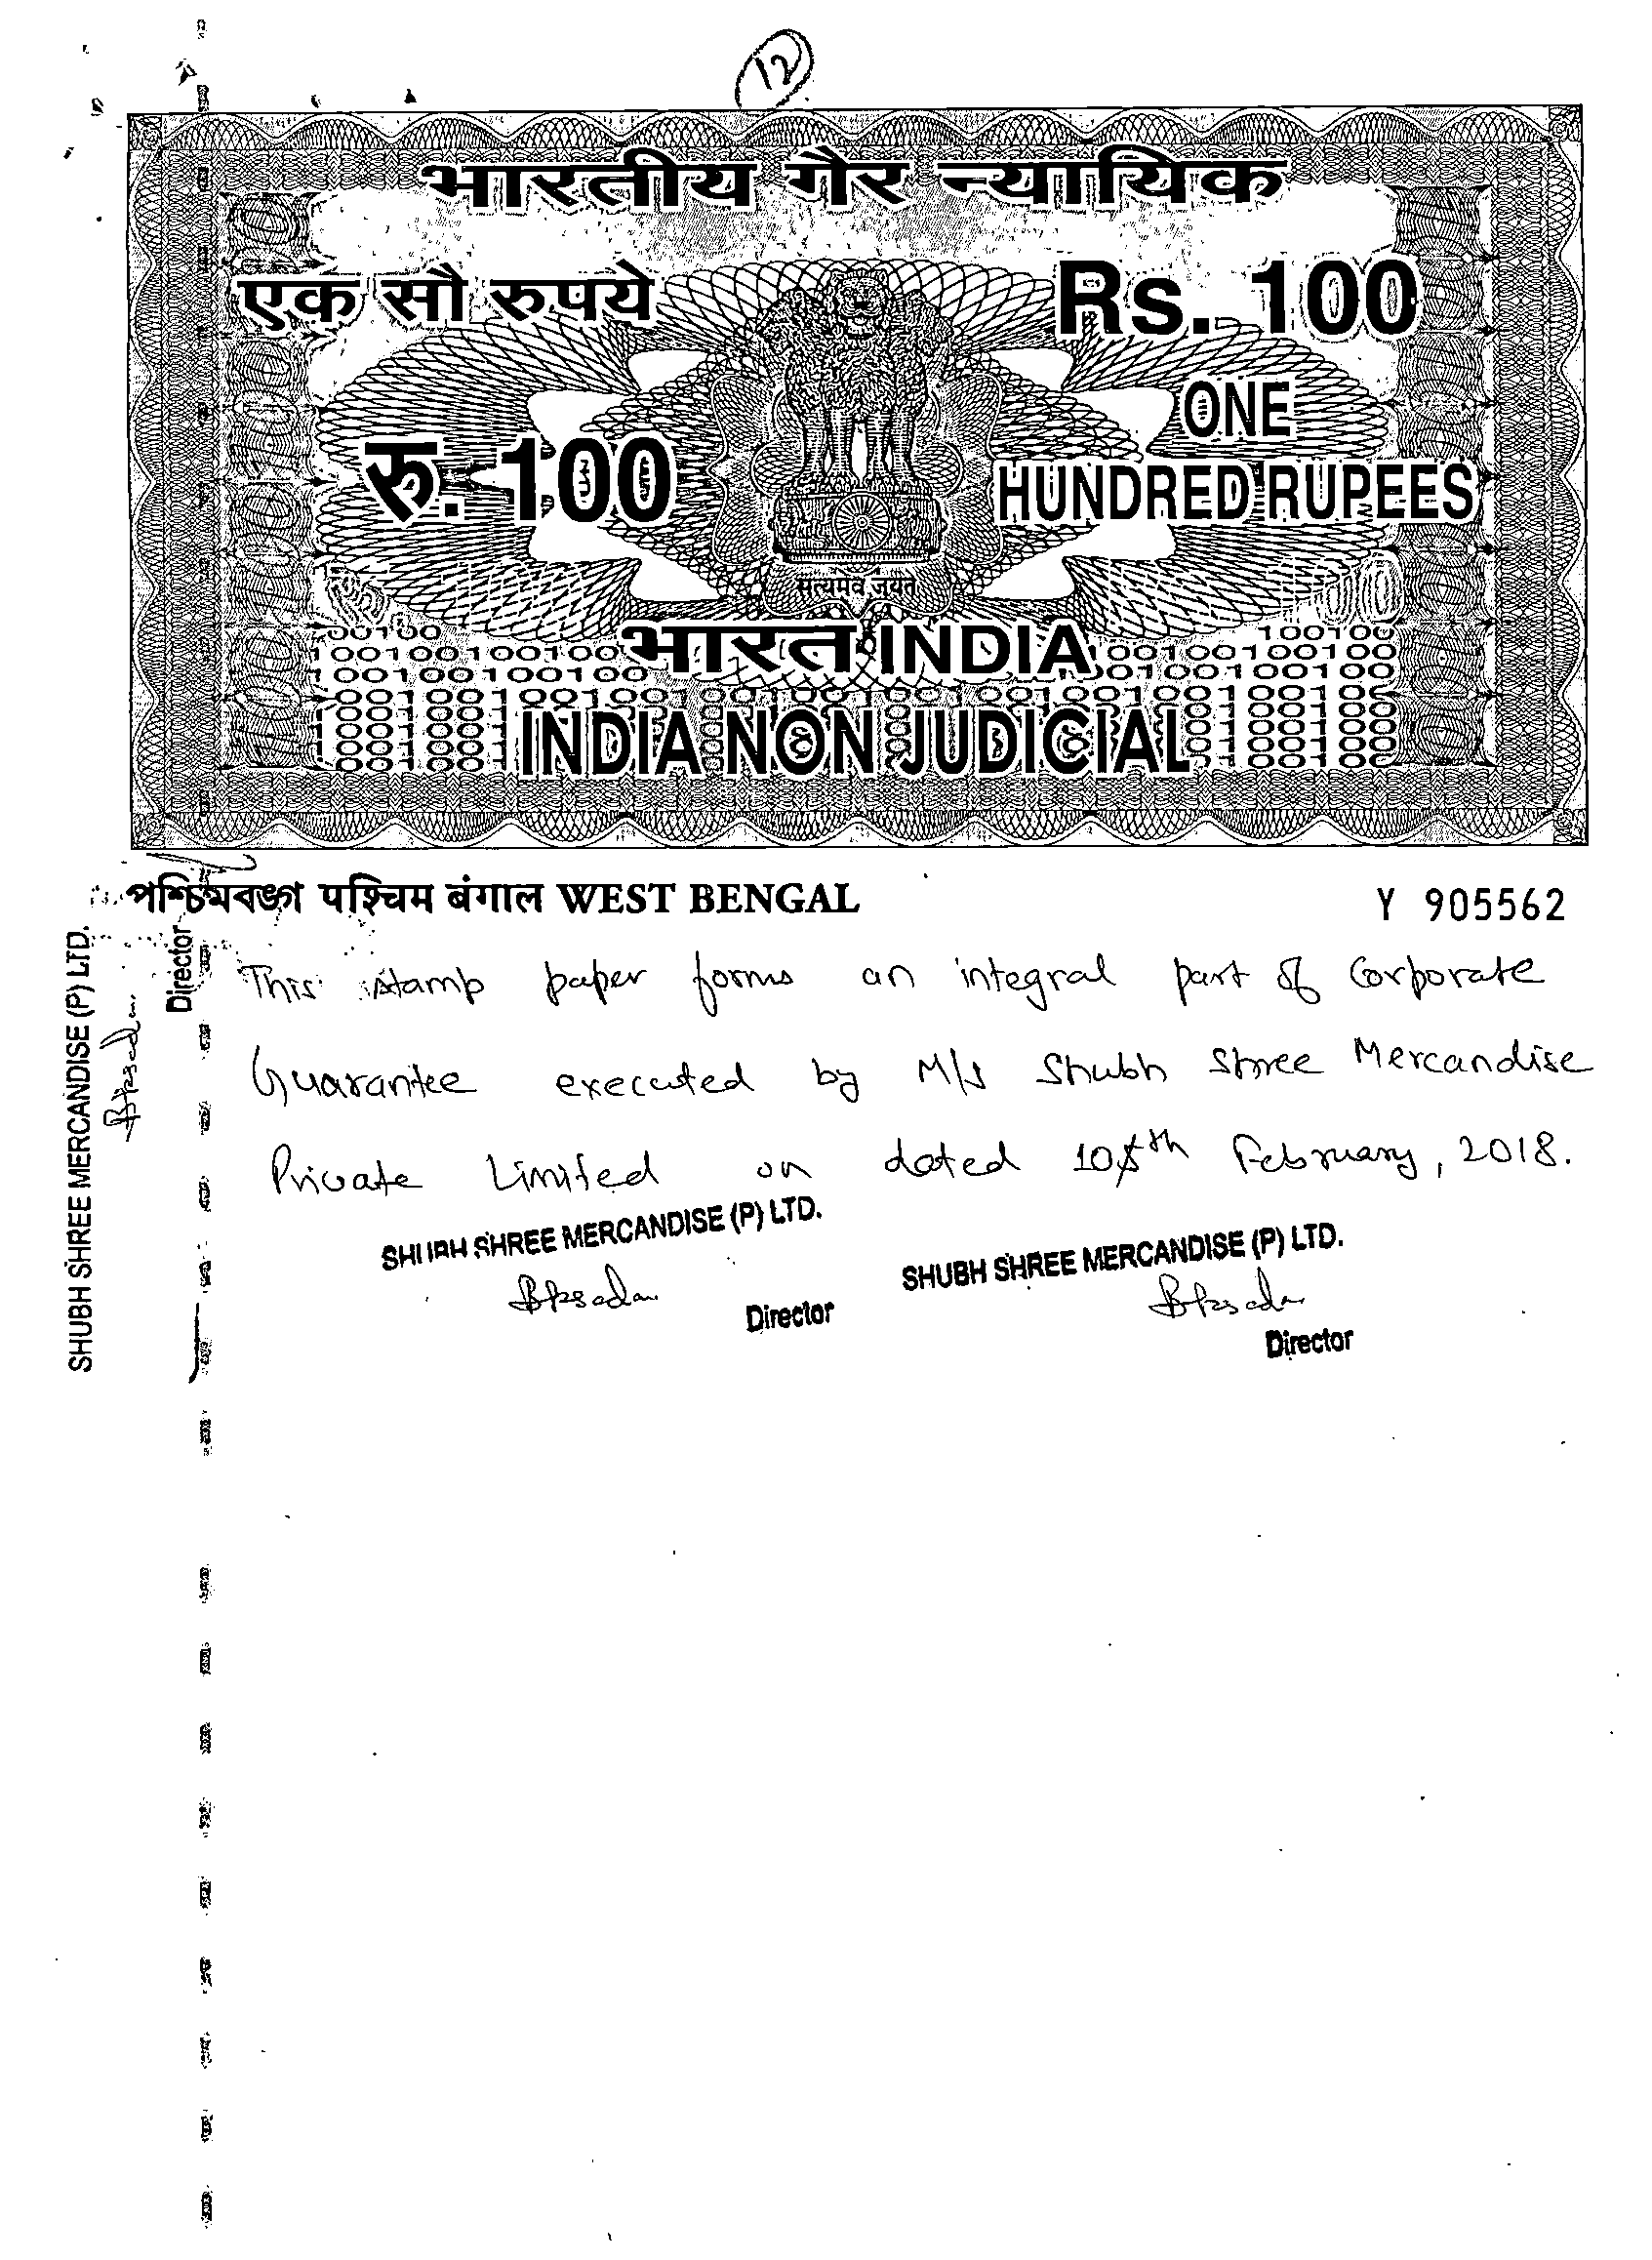 12
भारतीय गैर न्यायिक
एक सौ रुपये
Rs. 100
रु. 100
ONE
HUNDRED RUPEES
सत्यमेव जयते
भारत INDIA
INDIA NON JUDICIAL
পশ্চিমবঙ্গ पश्चिम बंगाल WEST BENGAL
Y 905562
This stamp paper forms an integral part of Corporate
Guarantee executed by M/s Shubh Shree Mercandise
Private Limited on dated 10th February, 2018.
SHUBH SHREE MERCANDISE (P) LTD.
Director
SHUBH SHREE MERCANDISE (P) LTD.
Director
SHUBH SHREE MERCANDISE (P) LTD.
Director